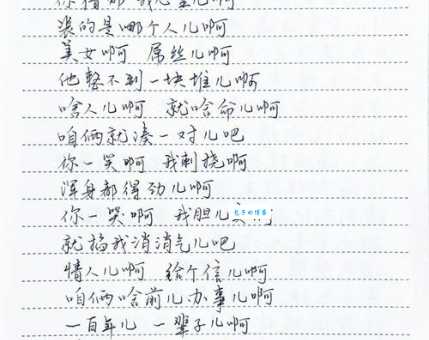 你猜那 我心里儿啊
装的是哪个人儿啊
美女啊 屌丝儿啊
他整不到一块堆儿啊
啥人儿啊 就啥命儿啊
咱俩就凑一对儿吧
你一笑啊 我刺挠啊
浑身都得劲儿啊
你一哭啊 我胆儿
就掐我消消气儿吧
情人儿啊 给个信儿啊
咱俩啥前儿办事儿啊
一百年儿 一辈子儿啊